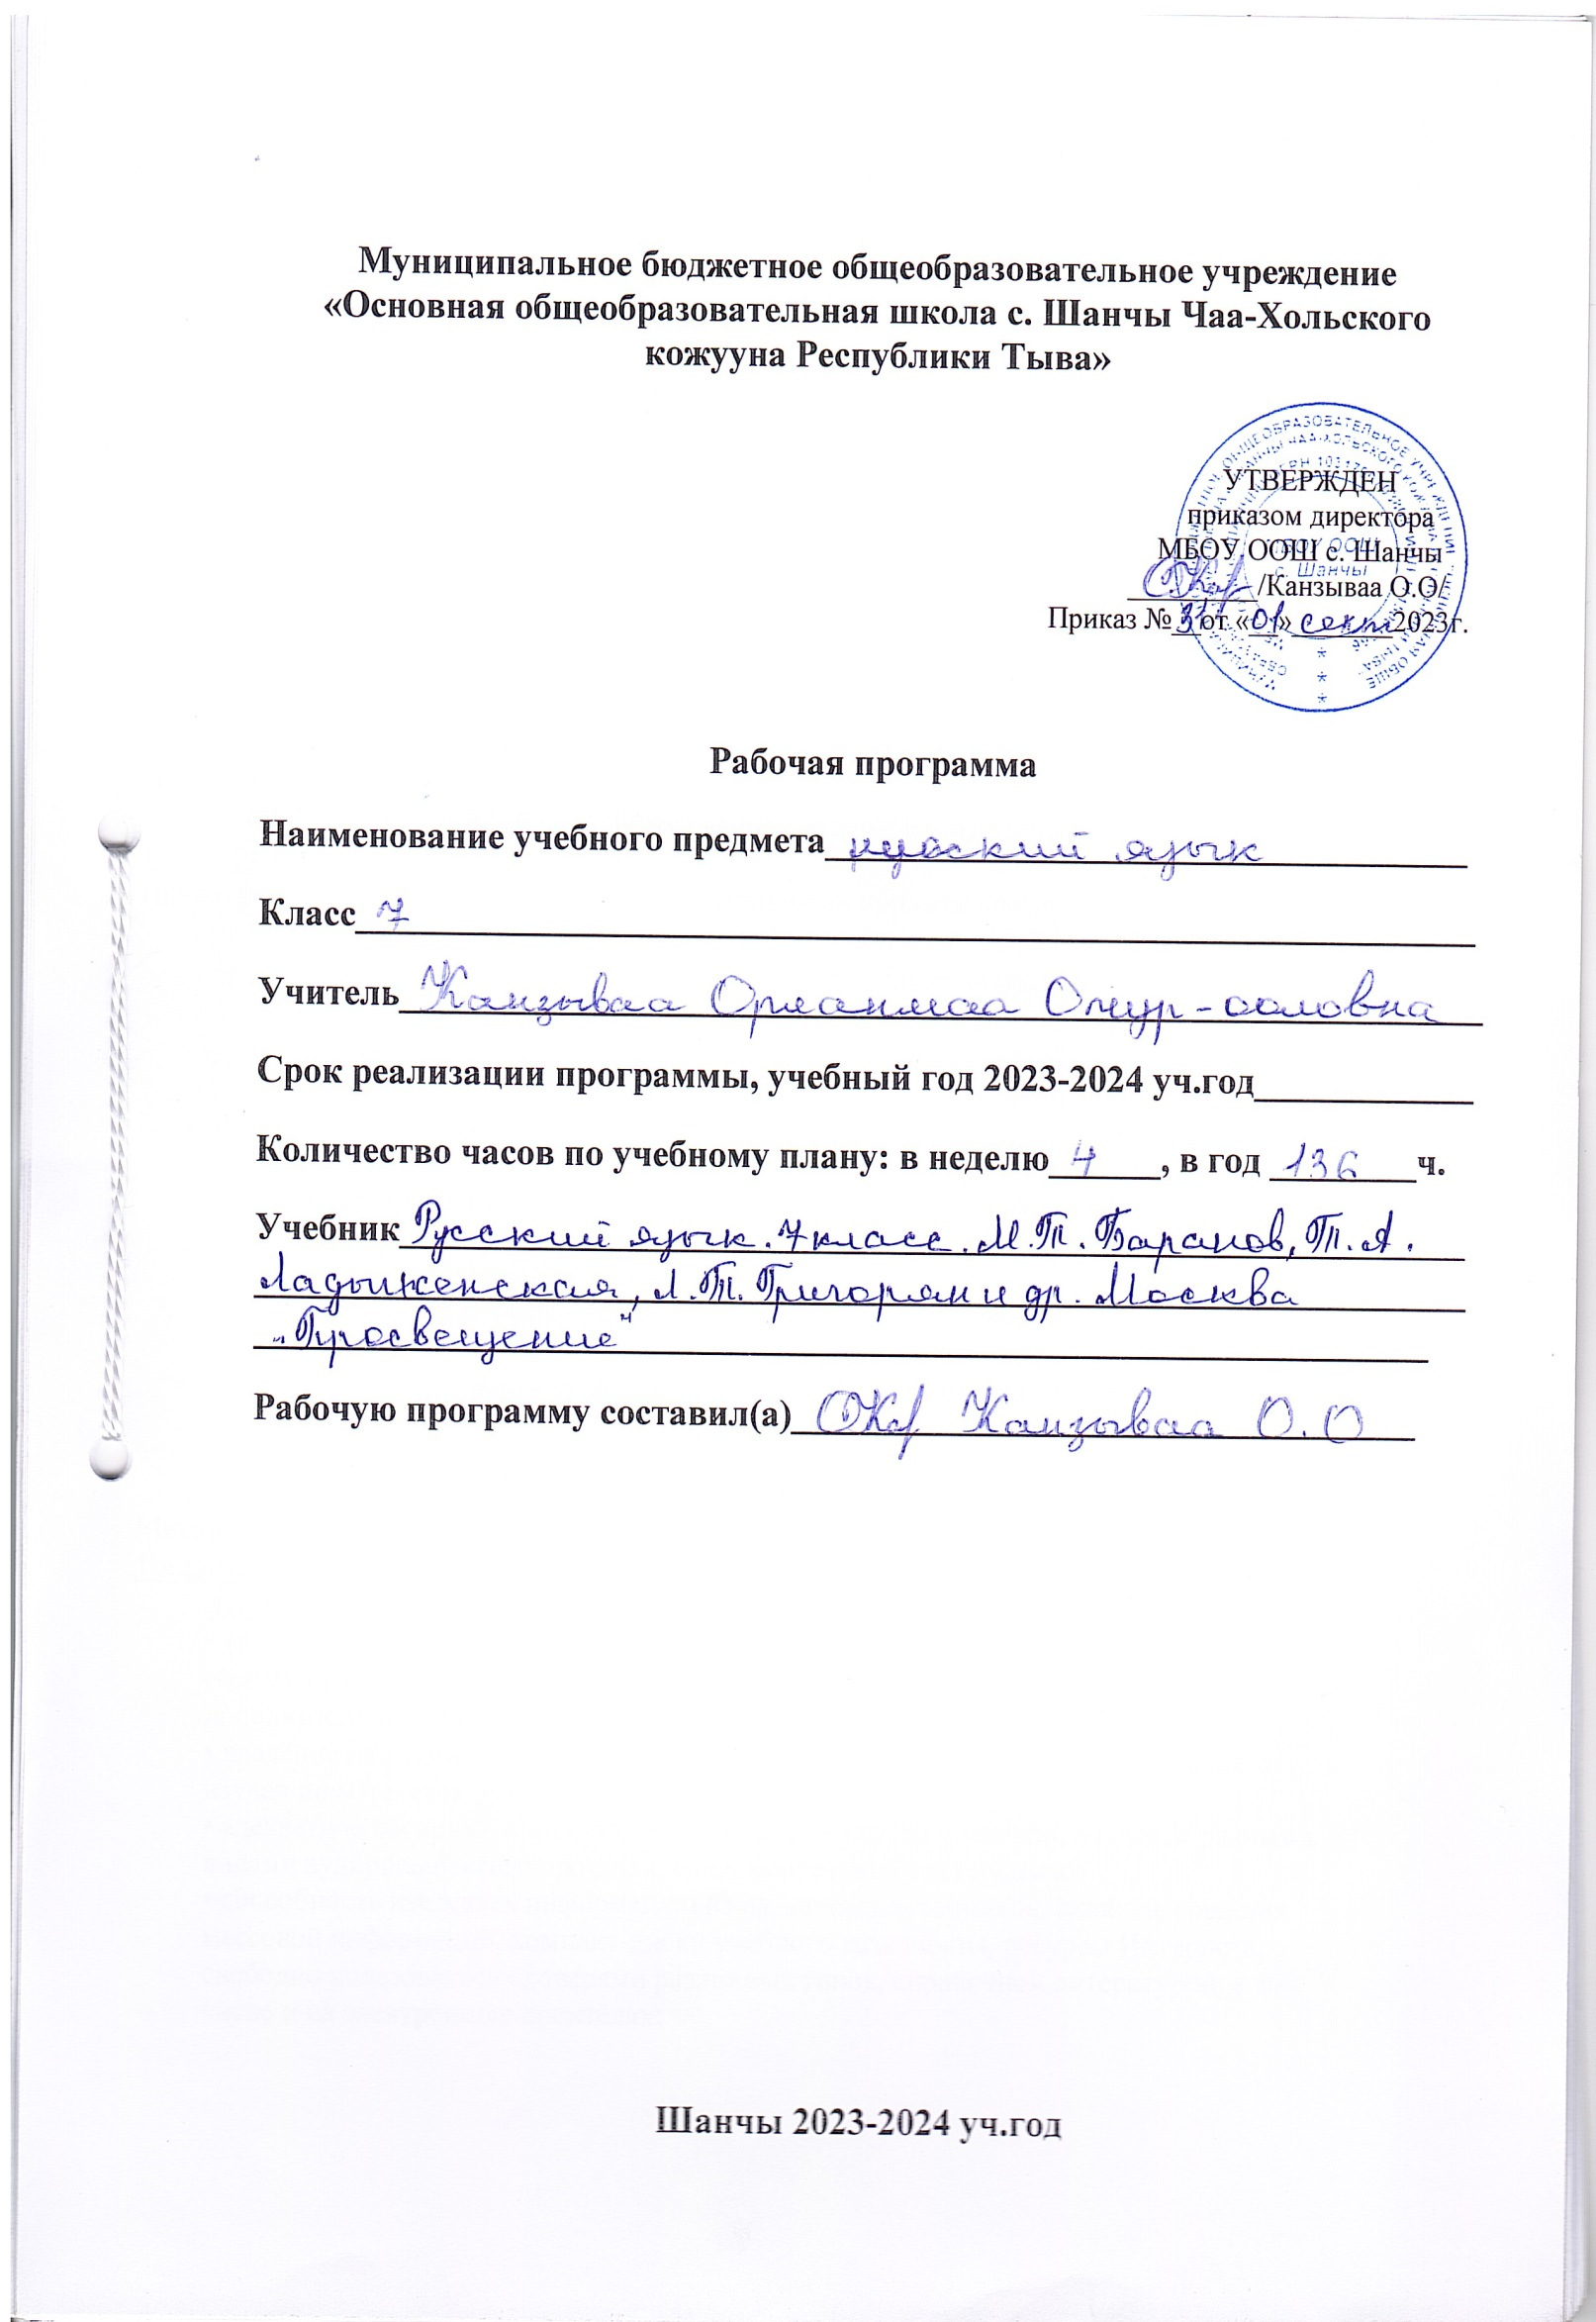 Муниципальное бюджетное общеобразовательное учреждение
«Основная общеобразовательная школа с. Шанчы Чаа-Хольского
кожууна Республики Тыва»
УТВЕРЖДЕН
приказом директора
МБОУ ООШ с. Шанчы
/Канзываа О.О/
Приказ № от «01» сент 2023г.
Рабочая программа
Наименование учебного предмета русский язык
Класс 7
Учитель Канзываа Орланмаа Очур-ооловна
Срок реализации программы, учебный год 2023-2024 уч.год
Количество часов по учебному плану: в неделю 4, в год 136 ч.
Учебник Русский язык. 7 класс. М.Т. Баранов, Т.А.
Ладыженская, Л.Т. Григорян и др. Москва
„Просвещение"
Рабочую программу составил(а) Канзываа О.О
Шанчы 2023-2024 уч.год